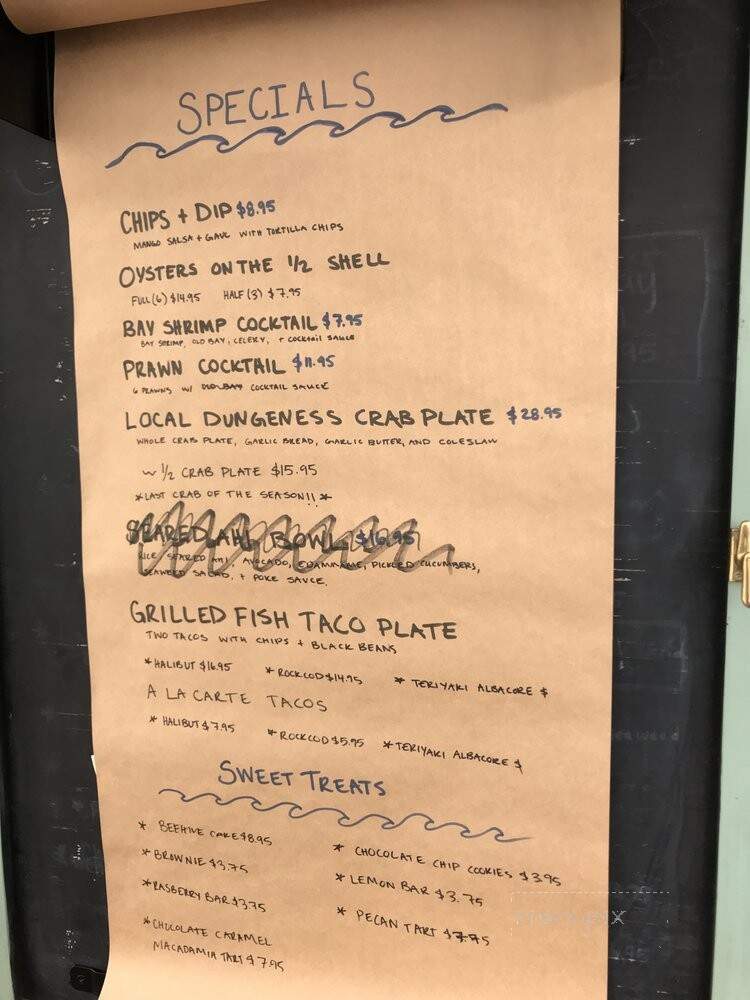 SPECIALS
CHIPS + DIP $8.95
MANGO SALSA + GAUC WITH TORTILLA CHIPS
OYSTERS ON THE 1/2 SHELL
FULL (6) $14.95 HALF (3) $7.95
BAY SHRIMP COCKTAIL $7.95
BAY SHRIMP, OLD BAY, CELERY, + COCKTAIL SAUCE
PRAWN COCKTAIL $11.95
6 PRAWNS W/ OLD BAY COCKTAIL SAUCE
LOCAL DUNGENESS CRAB PLATE $28.95
WHOLE CRAB PLATE, GARLIC BREAD, GARLIC BUTTER, AND COLESLAW
~ 1/2 CRAB PLATE $15.95
*LAST CRAB OF THE SEASON!! *
SEARED AHI BOWL $16.95
RICE, SEARED AHI, AVOCADO, EDAMAME, PICKLED CUCUMBERS,
SEAWEED SALAD, + POKE SAUCE.
GRILLED FISH TACO PLATE
TWO TACOS WITH CHIPS + BLACK BEANS
*HALIBUT $16.95 *ROCKCOD $14.95 * TERIYAKI ALBACORE $
A LA CARTE TACOS
* HALIBUT $7.95 *ROCKCOD $5.95 *TERIYAKI ALBACORE $
SWEET TREATS
* BEEHIVE CAKE $8.95 * CHOCOLATE CHIP COOKIES $3.95
*BROWNIE $3.75 * LEMON BAR $3.75
*RASBERRY BAR $3.75 * PECAN TART $7.95
*CHOCOLATE CARAMEL
MACADAMIA TART $7.95